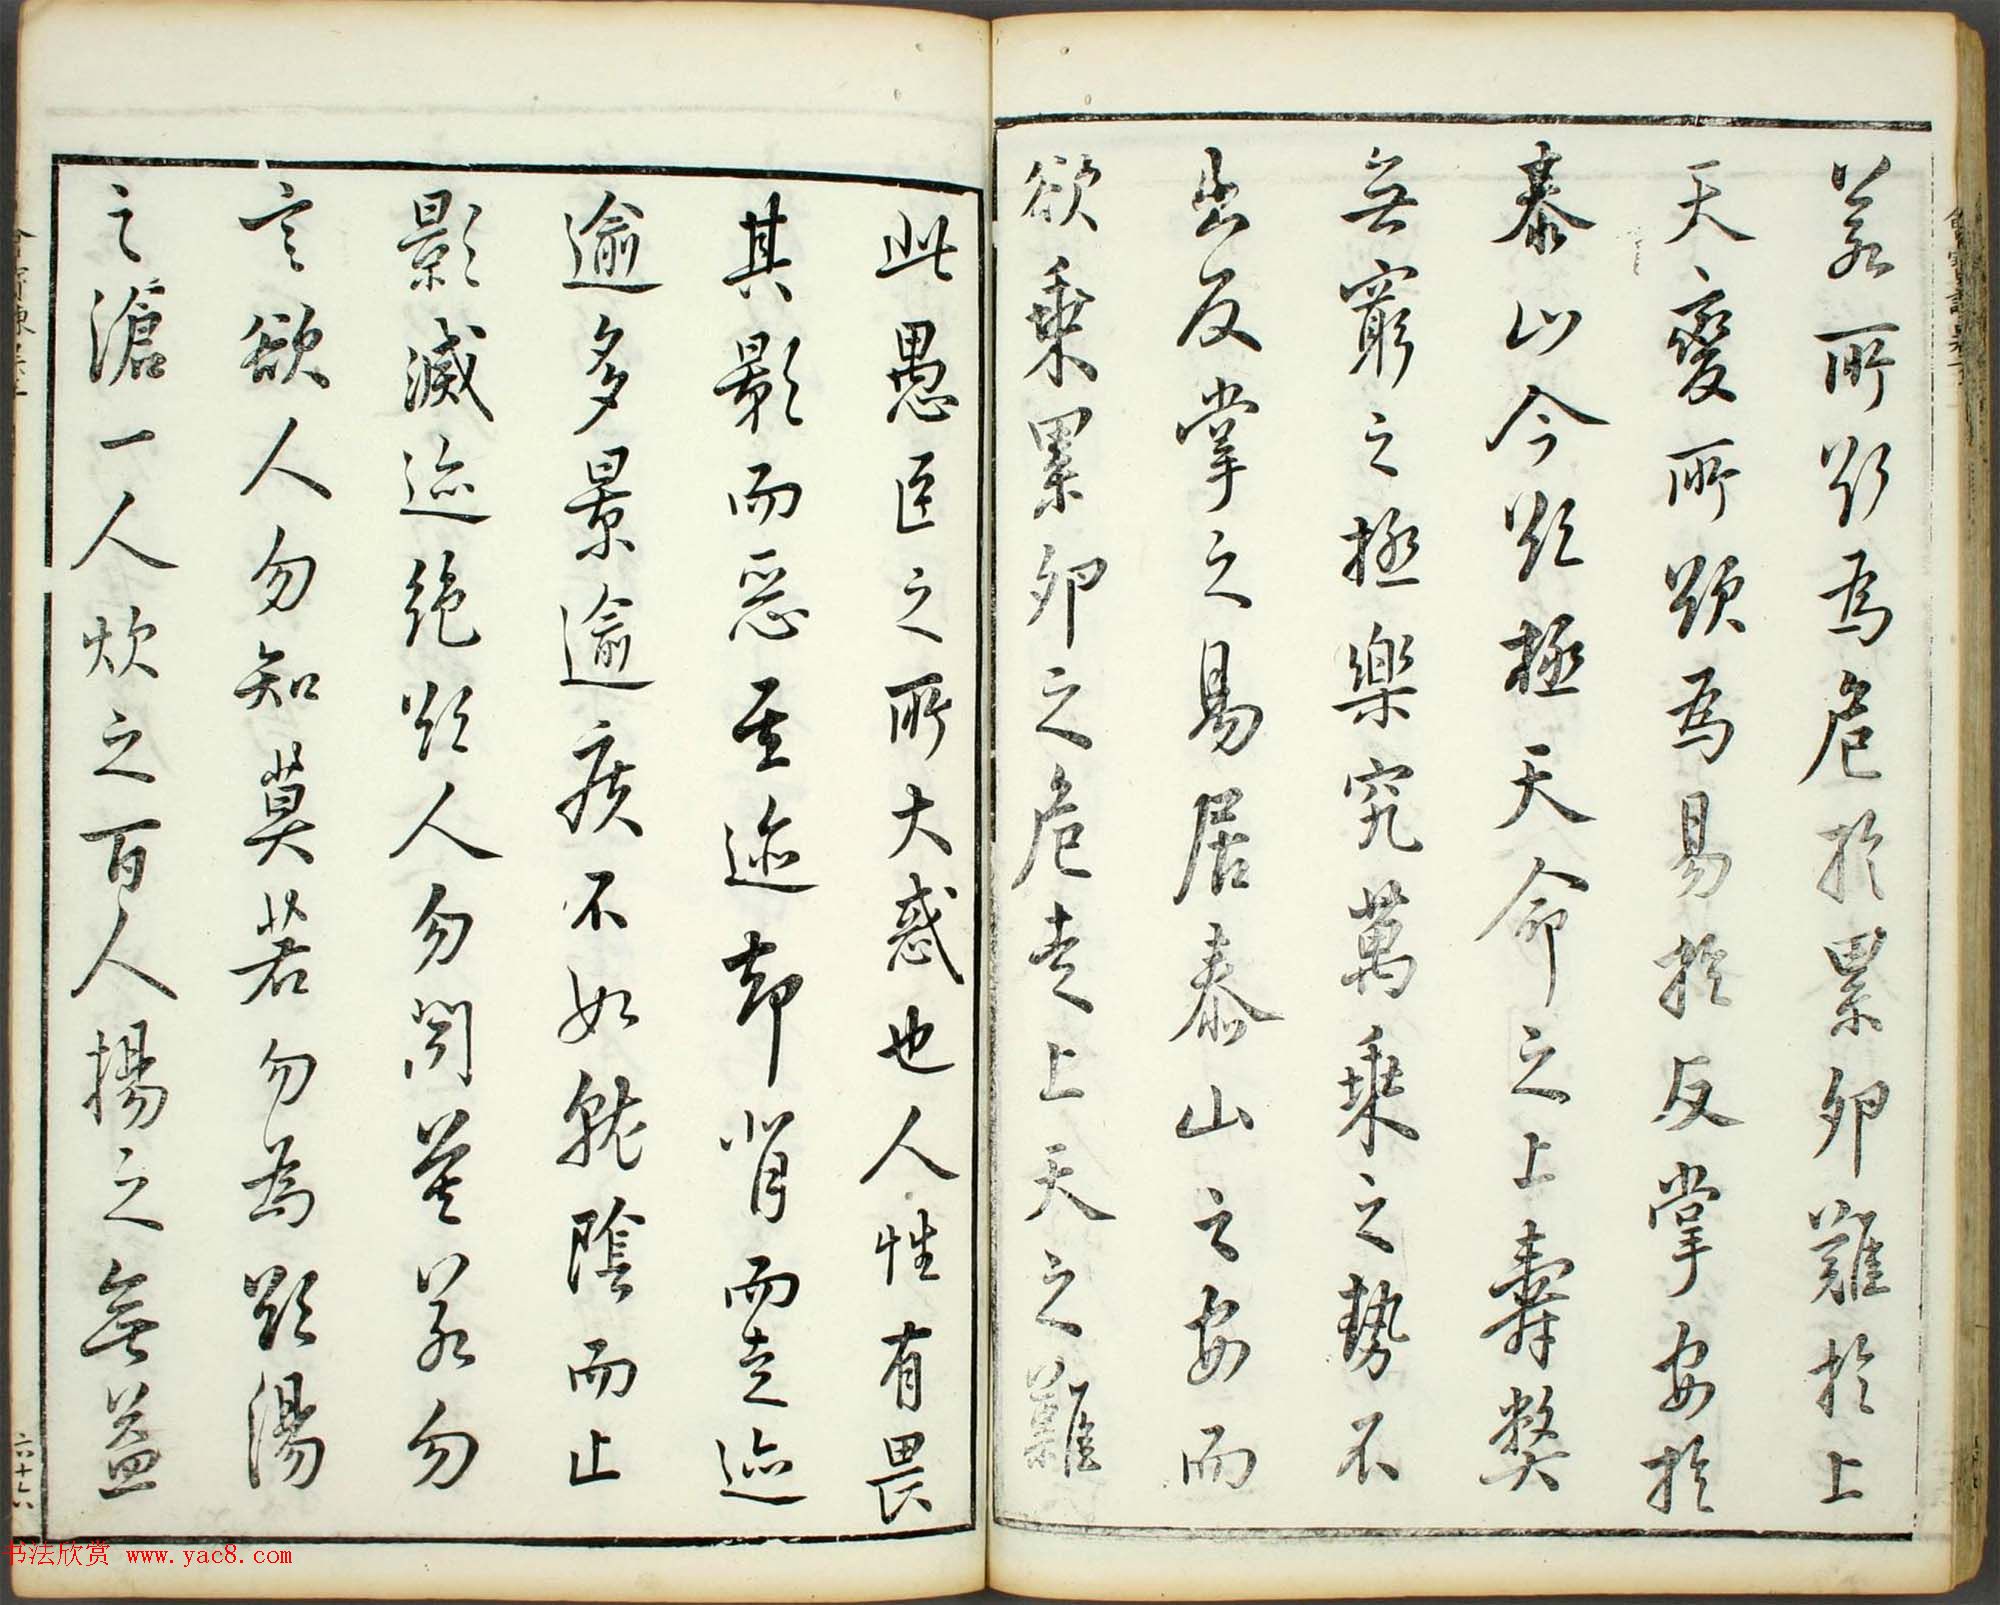 若所欲為危於累卵難於上
天變所欲為易於反掌安於
泰山今欲極天命之上壽弊
無窮之極樂究萬乘之勢不
出反掌之易居泰山之安而
欲乘累卵之危走上天之難
此愚臣之所大惑也人性有畏
其影而惡其迹却背而走迹
逾多景逾疾不如就陰而止
影滅迹絕欲人勿聞莫若勿
言欲人勿知莫若勿為欲湯
之滄一人炊之百人揚之無益
六十六
书法欣赏 www.yac8.com